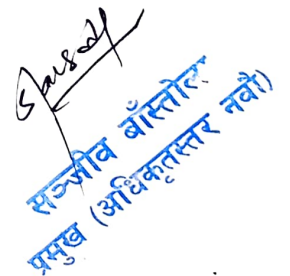 सञ्जीव बाँस्तोला
प्रमुख (अधिकृतस्तर नवौं)